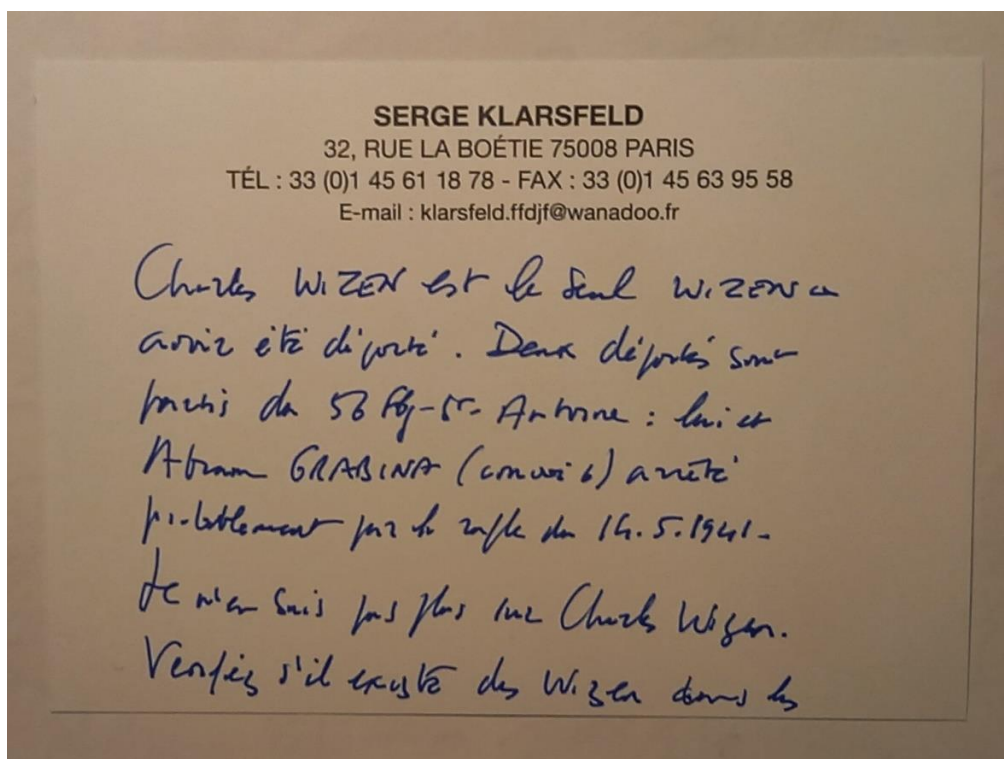 SERGE KLARSFELD
32, RUE LA BOÉTIE 75008 PARIS
TÉL : 33 (0)1 45 61 18 78 - FAX : 33 (0)1 45 63 95 58
E-mail : klarsfeld.ffdjf@wanadoo.fr
Charles WIZEN est le seul WIZEN a
avoir été déporté. Deux déportés sont
partis du 56 Fbg-St-Antoine : lui et
Abram GRABINA (convoi 6) arrêté
probablement par la rafle du 14.5.1941.
Je n'en sais pas plus sur Charles Wizen.
Verifiez s'il existe des Wizen dans les